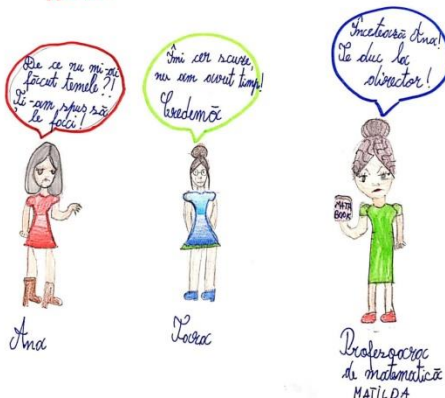 De ce nu mi-ai
făcut temele?!
Ți-am spus să
le faci!
Îmi cer scuze,
nu am avut timp!
Credemă
Încetează Ana!
Te duc la
director!
MATH
BOOK
Ana
Profesoara
de matematică
MATILDA